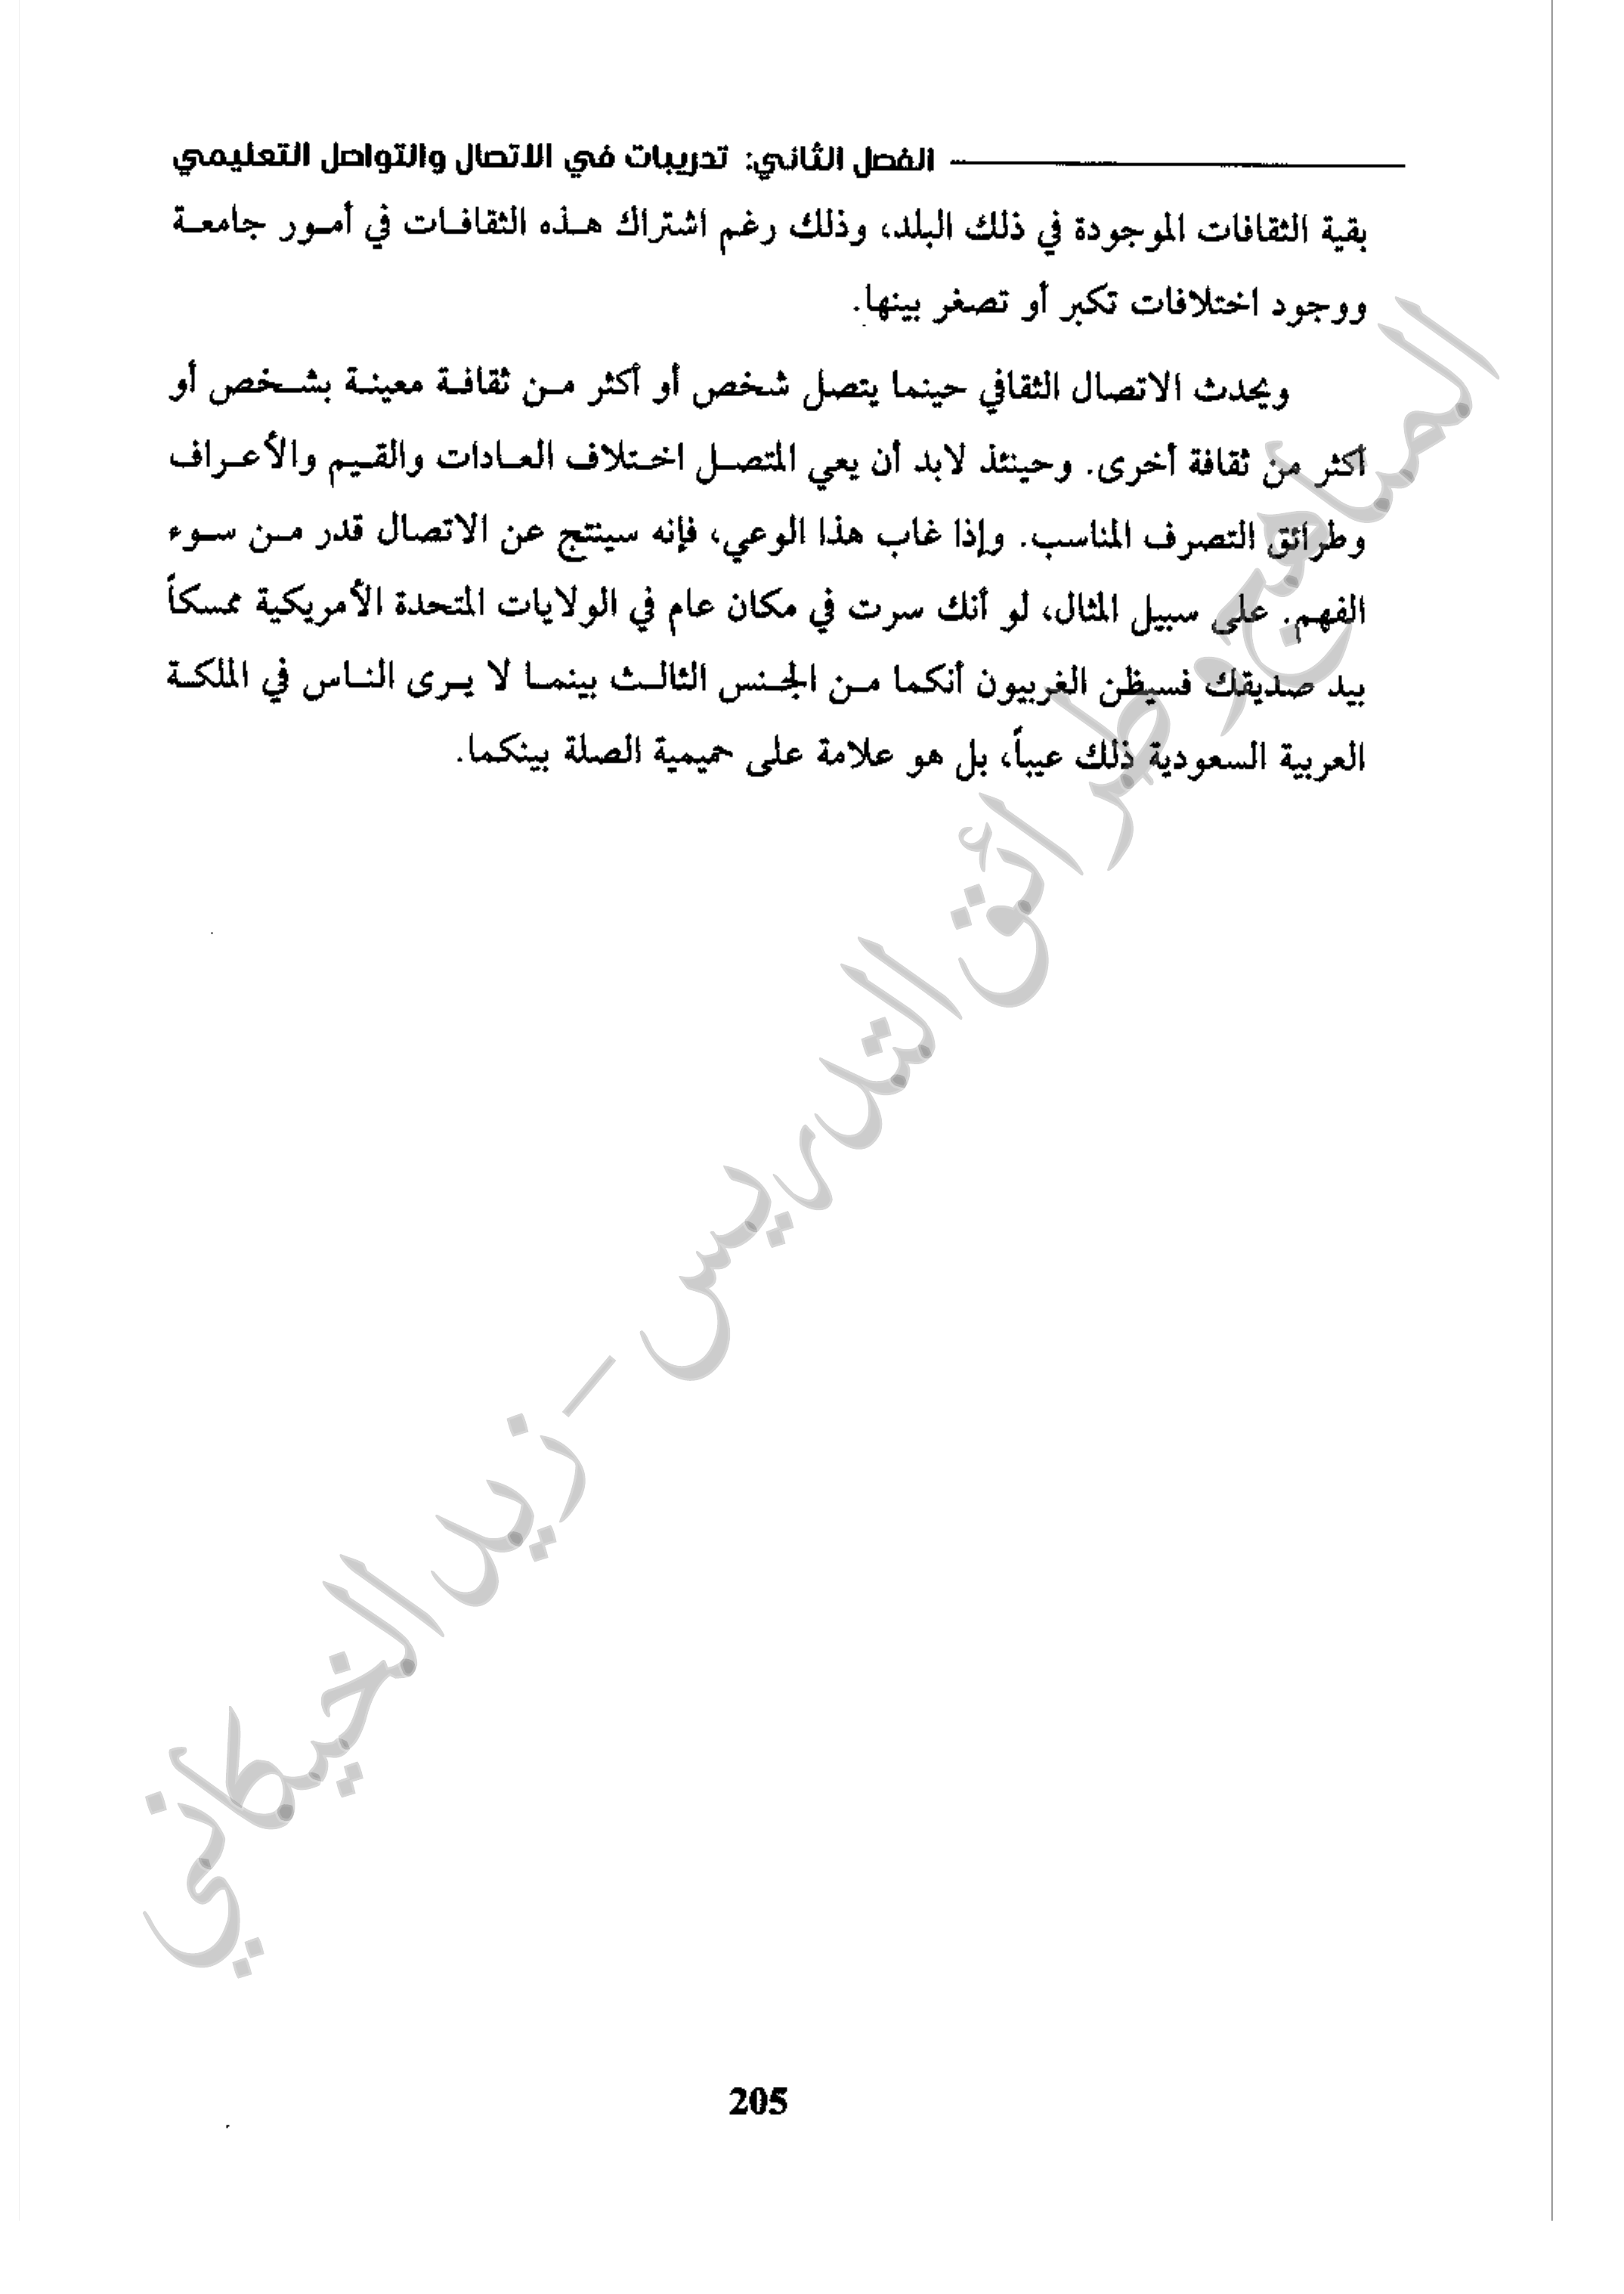 الفصل الثاني: تدريبات في الاتصال والتواصل التعليمي
بقية الثقافات الموجودة في ذلك البلد، وذلك رغم اشتراك هذه الثقافات في أمور جامعة
ووجود اختلافات تكبر أو تصغر بينها.
ويحدث الاتصال الثقافي حينما يتصل شخص أو أكثر من ثقافة معينة بشخص أو
أكثر من ثقافة أخرى. وحينئذ لابد أن يعي المتصل اختلاف العادات والقيم والأعراف
وطرائق التصرف المناسب. وإذا غاب هذا الوعي، فإنه سينتج عن الاتصال قدر من سوء
الفهم. على سبيل المثال، لو أنك سرت في مكان عام في الولايات المتحدة الأمريكية ممسكاً
بيد صديقك فسيظن الغربيون أنكما من الجنس الثالث بينما لا يرى الناس في الملكة
العربية السعودية ذلك عيباً، بل هو علامة على حميمية الصلة بينكما.
المناهج وطرائق التدريس - زيد الخيكاني
205